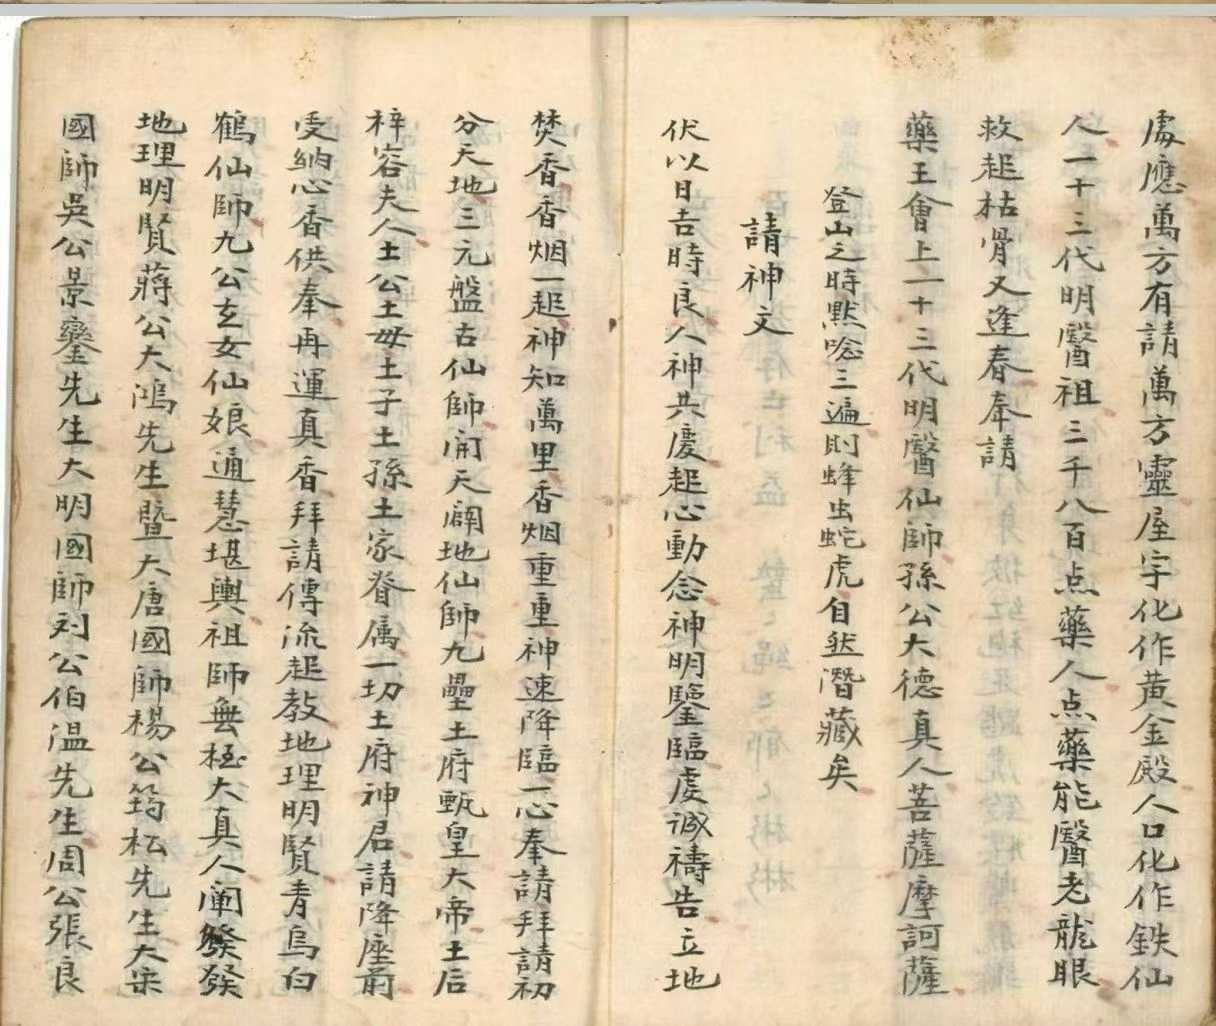 處應萬方有請萬方靈屋宇化作黃金殿人口化作鉄仙
人一十三代明醫祖三千八百点藥人点藥能醫老龍眼
救起枯骨又逢春奉請
藥王會上一十三代明醫仙師孫公大德真人菩薩摩訶薩
登山之時黙唸三遍則蜂虫蛇虎自然潛藏矣
請神文
伏以日吉時良人神共慶起心動念神明鑒臨虔诚禱告立地
焚香香烟一起神知萬里香烟重重神速降臨一心奉請拜請初
分天地三元盤古仙師開天闢地仙師九壘土府甄皇大帝土后
梓容夫人土公土母土子土孫土家眷属一切土府神君請降座前
受納心香供奉再運真香拜請傳流起教地理明賢青烏白
鶴仙師九公玄女仙娘通慧堪輿祖師無極大真人阐發發
地理明賢蔣公大鴻先生暨大唐國師楊公筠松先生大宋
國師吳公景鑾先生大明國師刘公伯温先生周公張良